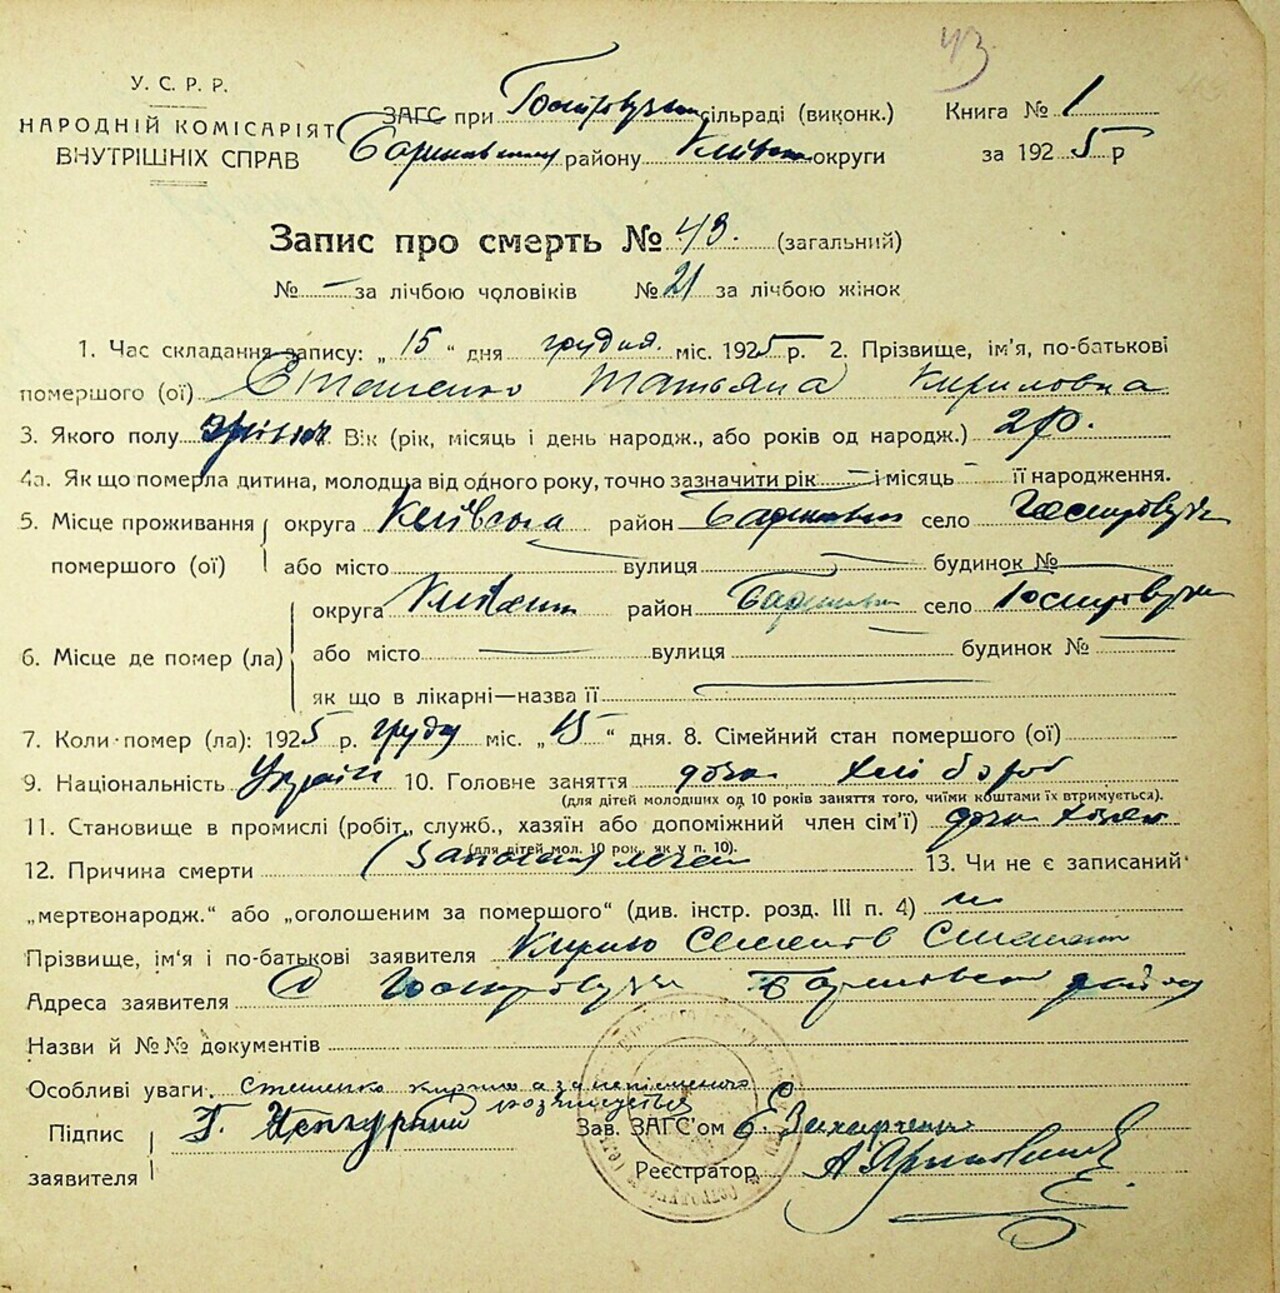 43
У. С. Р. Р.
НАРОДНІЙ КОМІСАРІЯТ
ВНУТРІШНІХ СПРАВ
ЗАГС при сільраді (виконк.)
району Київськ округи
Книга № 1
за 1925 р
Запис про смерть № 43. (загальний)
№ — за лічбою чоловіків № 21 за лічбою жінок
1. Час складання запису: „15“ дня грудня. міс. 1925 р. 2. Прізвище, ім'я, по-батькові
помершого (ої) Стешенко Татьяна Кириловна
3. Якого полу жіноч. Вік (рік, місяць і день народж., або років од народж.) 2 р.
4а. Як що померла дитина, молодща від одного року, точно зазначити рік — і місяць — її народження.
5. Місце проживання помершого (ої) округа Київська район село
або місто вулиця будинок №
6. Місце де помер (ла) округа район село
або місто вулиця будинок №
як що в лікарні—назва її
7. Коли помер (ла): 1925 р. груд міс. „15“ дня. 8. Сімейний стан помершого (ої)
9. Національність Україн 10. Головне заняття дочка хлібороб
(для дітей молодіших од 10 років заняття того, чиїми коштами їх втримується).
11. Становище в промислі (робіт., служб., хазяїн або допоміжний член сім'ї) дочка хазяїн
(для дітей мол. 10 рок., як у п. 10).
12. Причина смерти 13. Чи не є записаний
„мертвонародж.“ або „оголошеним за помершого“ (див. інстр. розд. III п. 4) ні
Прізвище, ім'я і по-батькові заявителя Кирило Стешенко
Адреса заявителя С район
Назви й №№ документів
Особливі уваги. Стешенко Кирило а за неписьменого
розписується
Підпис заявителя Г.
Зав. ЗАГС'ом Є. Захарченко
Реєстратор